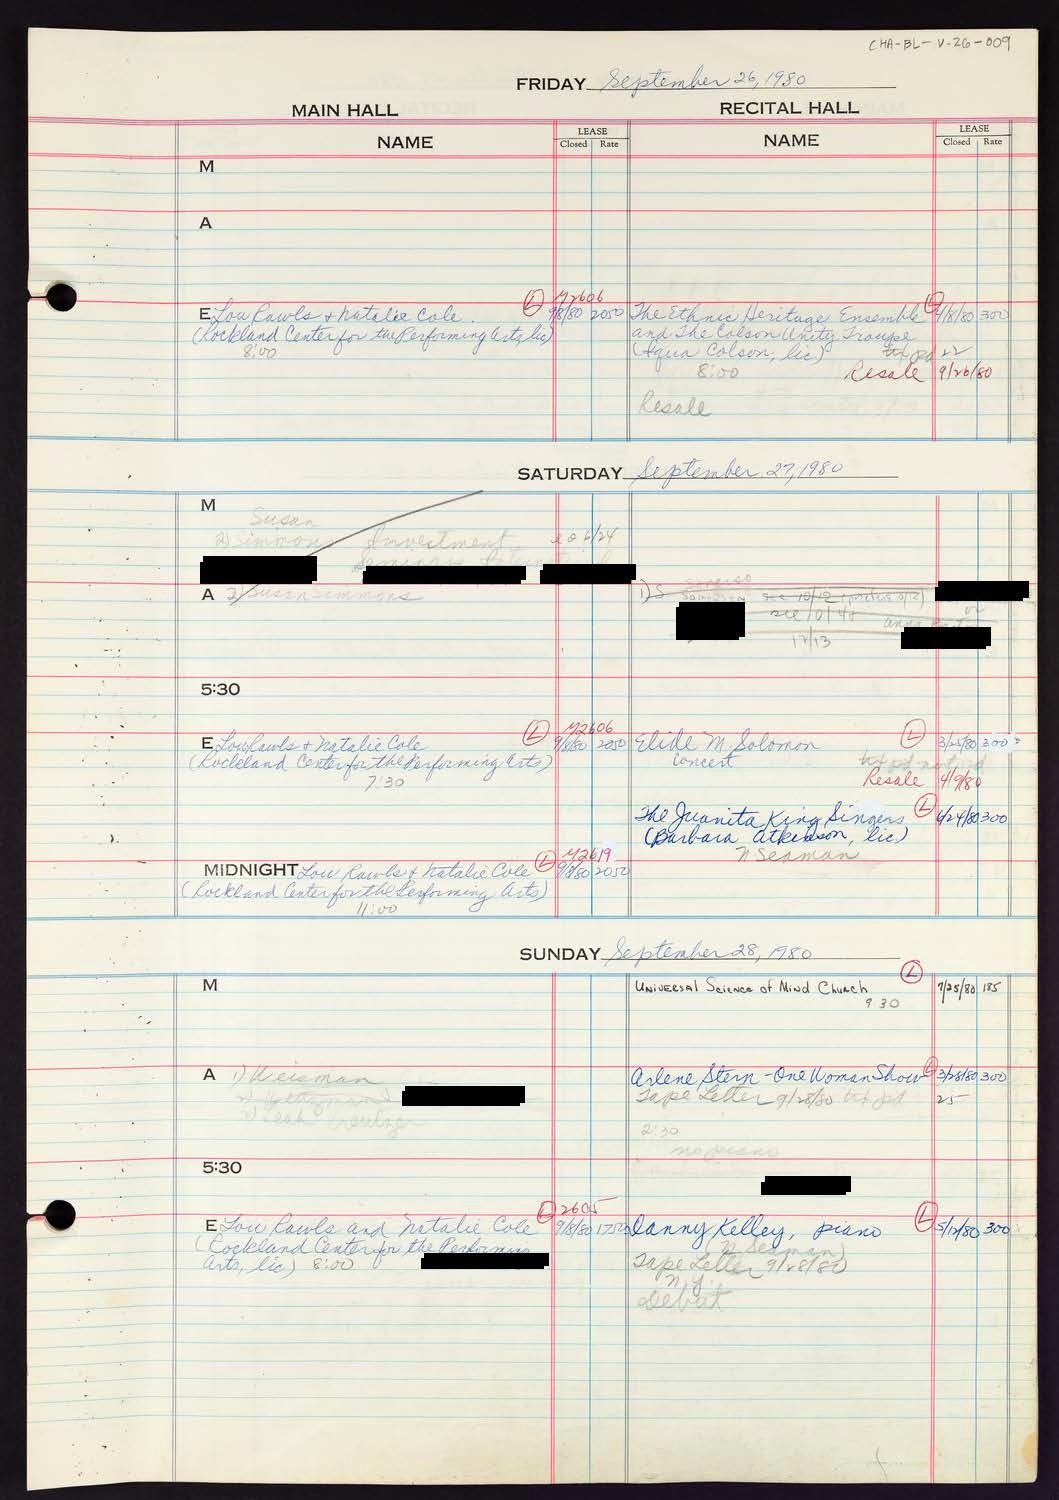 CHA-BL-V-26-009
FRIDAY September 26, 1980
MAIN HALL
RECITAL HALL
NAME
LEASE
Closed Rate
NAME
LEASE
Closed Rate
M
A
M2606
E Lou Rawls & Natalie Cole L 9/8/80 2050
(Rockland Center for the Performing Arts, lic)
8:00
The Ethnic Heritage Ensemble L 4/8/80 300
and The Colson Unity Troupe
(Aqua Colson, lic) txt pd 22
8:00 Resale 9/26/80
Resale
SATURDAY September 27, 1980
M
Susan
2) Simmons Investment 6/24
Seminars
A 2) Susan Simmons
1) S
see 10/12
or
see 10/
12/13
5:30
M2606
E Lou Rawls & Natalie Cole L 9/8/80 2050
(Rockland Center for the Performing Arts)
7:30
Elide M. Solomon L 3/25/80 300
Concert
Resale 4/9/80
The Juanita King Singers L 6/24/80 300
(Barbara Atkinson, lic)
N Seaman
M2619
MIDNIGHT Lou Rawls & Natalie Cole L 9/8/80 2050
(Rockland Center for the Performing Arts)
11:00
SUNDAY September 28, 1980
M
Universal Science of Mind Church L 7/25/80 185
9 30
A 1) Weisman
Arlene Stern - One Woman Show L 3/28/80 300
Tape Letter 9/28/80 txt pd 25
2:30
no piano
5:30
2605
E Lou Rawls and Natalie Cole L 9/8/80 1750
(Rockland Center for the Performing
Arts, lic) 8:00
Danny Kelley, piano L 5/12/80 300
N Seaman)
Tape Letter 9/28/80
N.Y.
Debut